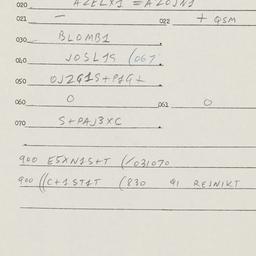 020 AZELX1 = AZOJN1
021 – 022 + QSM
030 BLOMB1
040 JOSL19 (067
050 OJ2G1S+P1G+
060 O 061 O
070 S+PAJ3XC
900 E5XN1S+T (/031070
900 ((C+1ST1T (830 91 REJNIKT